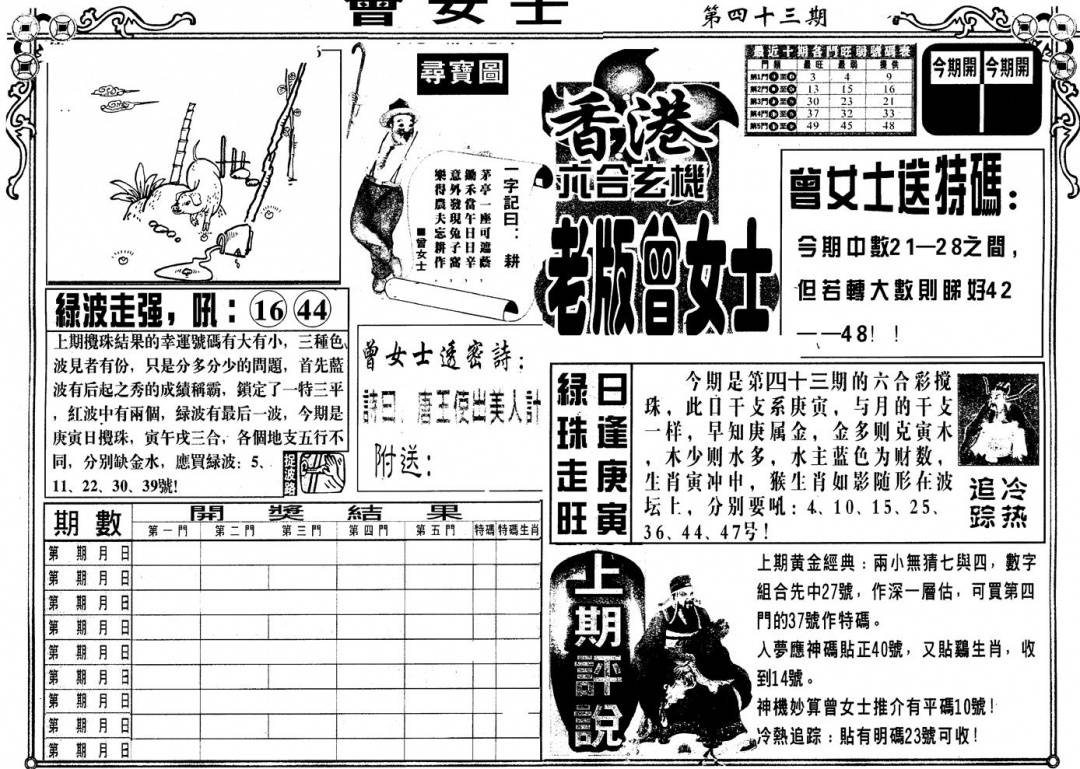 曾女士
第四十三期
尋寶圖
一字記曰：耕
茅亭一座可遮蔭
鋤禾當午日日辛
意外發現兔子窩
樂得農夫忘耕作
■曾女士
香港
六合玄機
老版曾女士
最近十期各門旺弱號碼表
門類 最旺 最弱 提供
第1門 至 3 4 9
第2門 至 13 15 16
第3門 至 30 23 21
第4門 至 37 32 33
第5門 至 49 45 48
今期開 今期開
曾女士送特碼：
今期中數21—28之間，
但若轉大數則睇好42
——48！！
綠波走强，吼：16 44
上期攪珠結果的幸運號碼有大有小，三種色
波見者有份，只是分多分少的問題，首先藍
波有后起之秀的成績稱霸，鎖定了一特三平
，紅波中有兩個，緑波有最后一波，今期是
庚寅日攪珠，寅午戌三合，各個地支五行不
同，分别缺金水，應買緑波：5、
11、22、30、39號!
捉波路
曾女士透密詩：
詩曰：唐王使出美人計
附送：
綠珠走旺
日逢庚寅
今期是第四十三期的六合彩搅
珠，此日干支系庚寅，与月的干支
一样，早知庚属金，金多则克寅木
，木少则水多，水主蓝色为财数，
生肖寅冲申，猴生肖如影随形在波
坛上，分别要吼：4、10、15、25、
36、44、47号！
冷热
追踪
期數 開獎結果
第一門 第二門 第三門 第四門 第五門 特碼 特碼生肖
第 期 月 日
第 期 月 日
第 期 月 日
第 期 月 日
第 期 月 日
第 期 月 日
第 期 月 日
第 期 月 日
第 期 月 日
上期評說
上期黄金經典：兩小無猜七與四，數字
組合先中27號，作深一層估，可買第四
門的37號作特碼。
人夢應神碼貼正40號，又貼鷄生肖，收
到14號。
神機妙算曾女士推介有平碼10號！
冷熱追踪：貼有明碼23號可收！